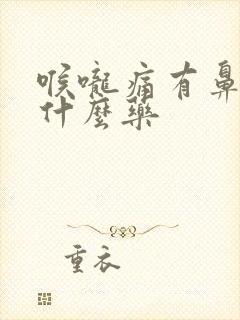 喉嚨痛有鼻
什麼藥
重衣